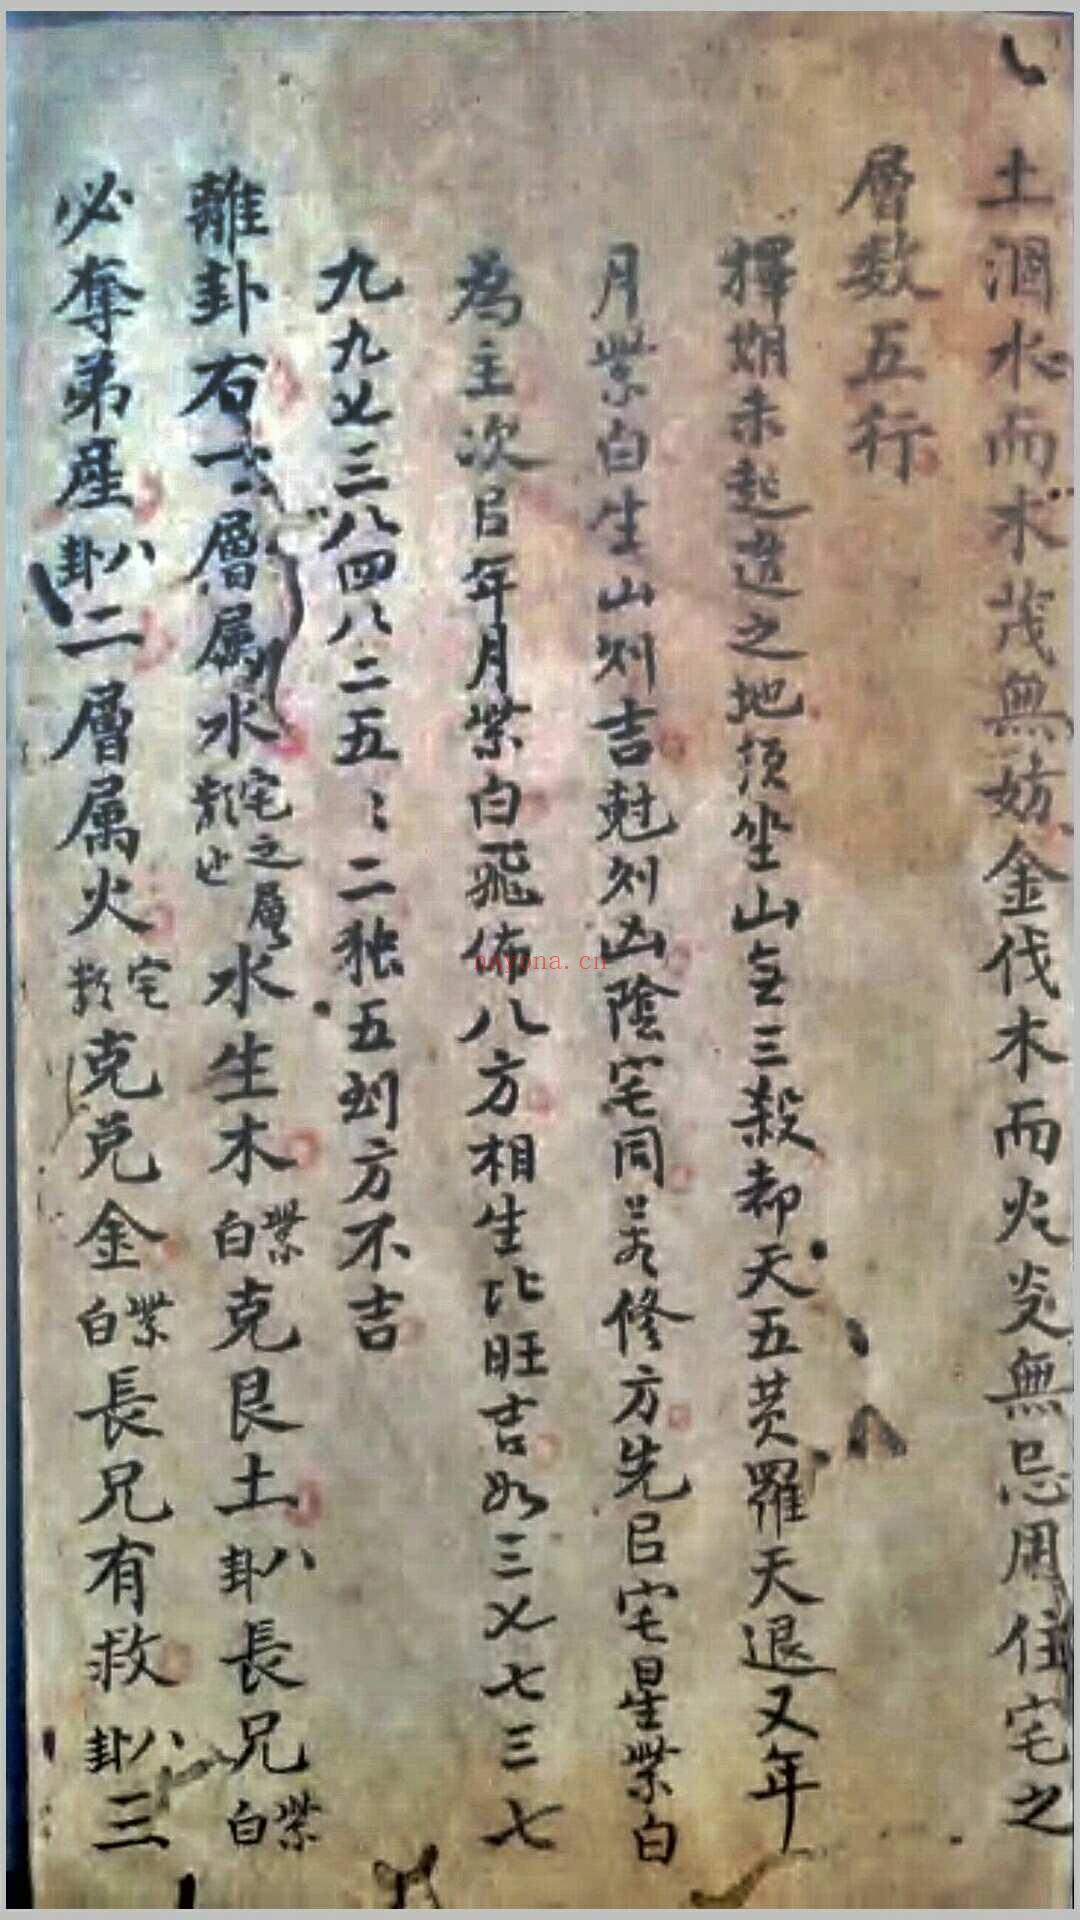 土涸水而木茂無妨金伐木而火炎無忌用住宅之
層数五行
擇期未起造之地須坐山無三殺都天五黄羅天退又年
月紫白生山則吉尅則凶陰宅同若修方先㠯宅星紫白
為主次㠯年月紫白飛佈八方相生比旺吉如三乂七三七
九九乂三八四八二五〻二独五到方不吉
離卦右一層属水宅之層数也水生木紫白克艮土八卦長兄紫白
必奪弟産八卦二層属火宅数克兑金紫白長兄有救八卦三
nayona.cn